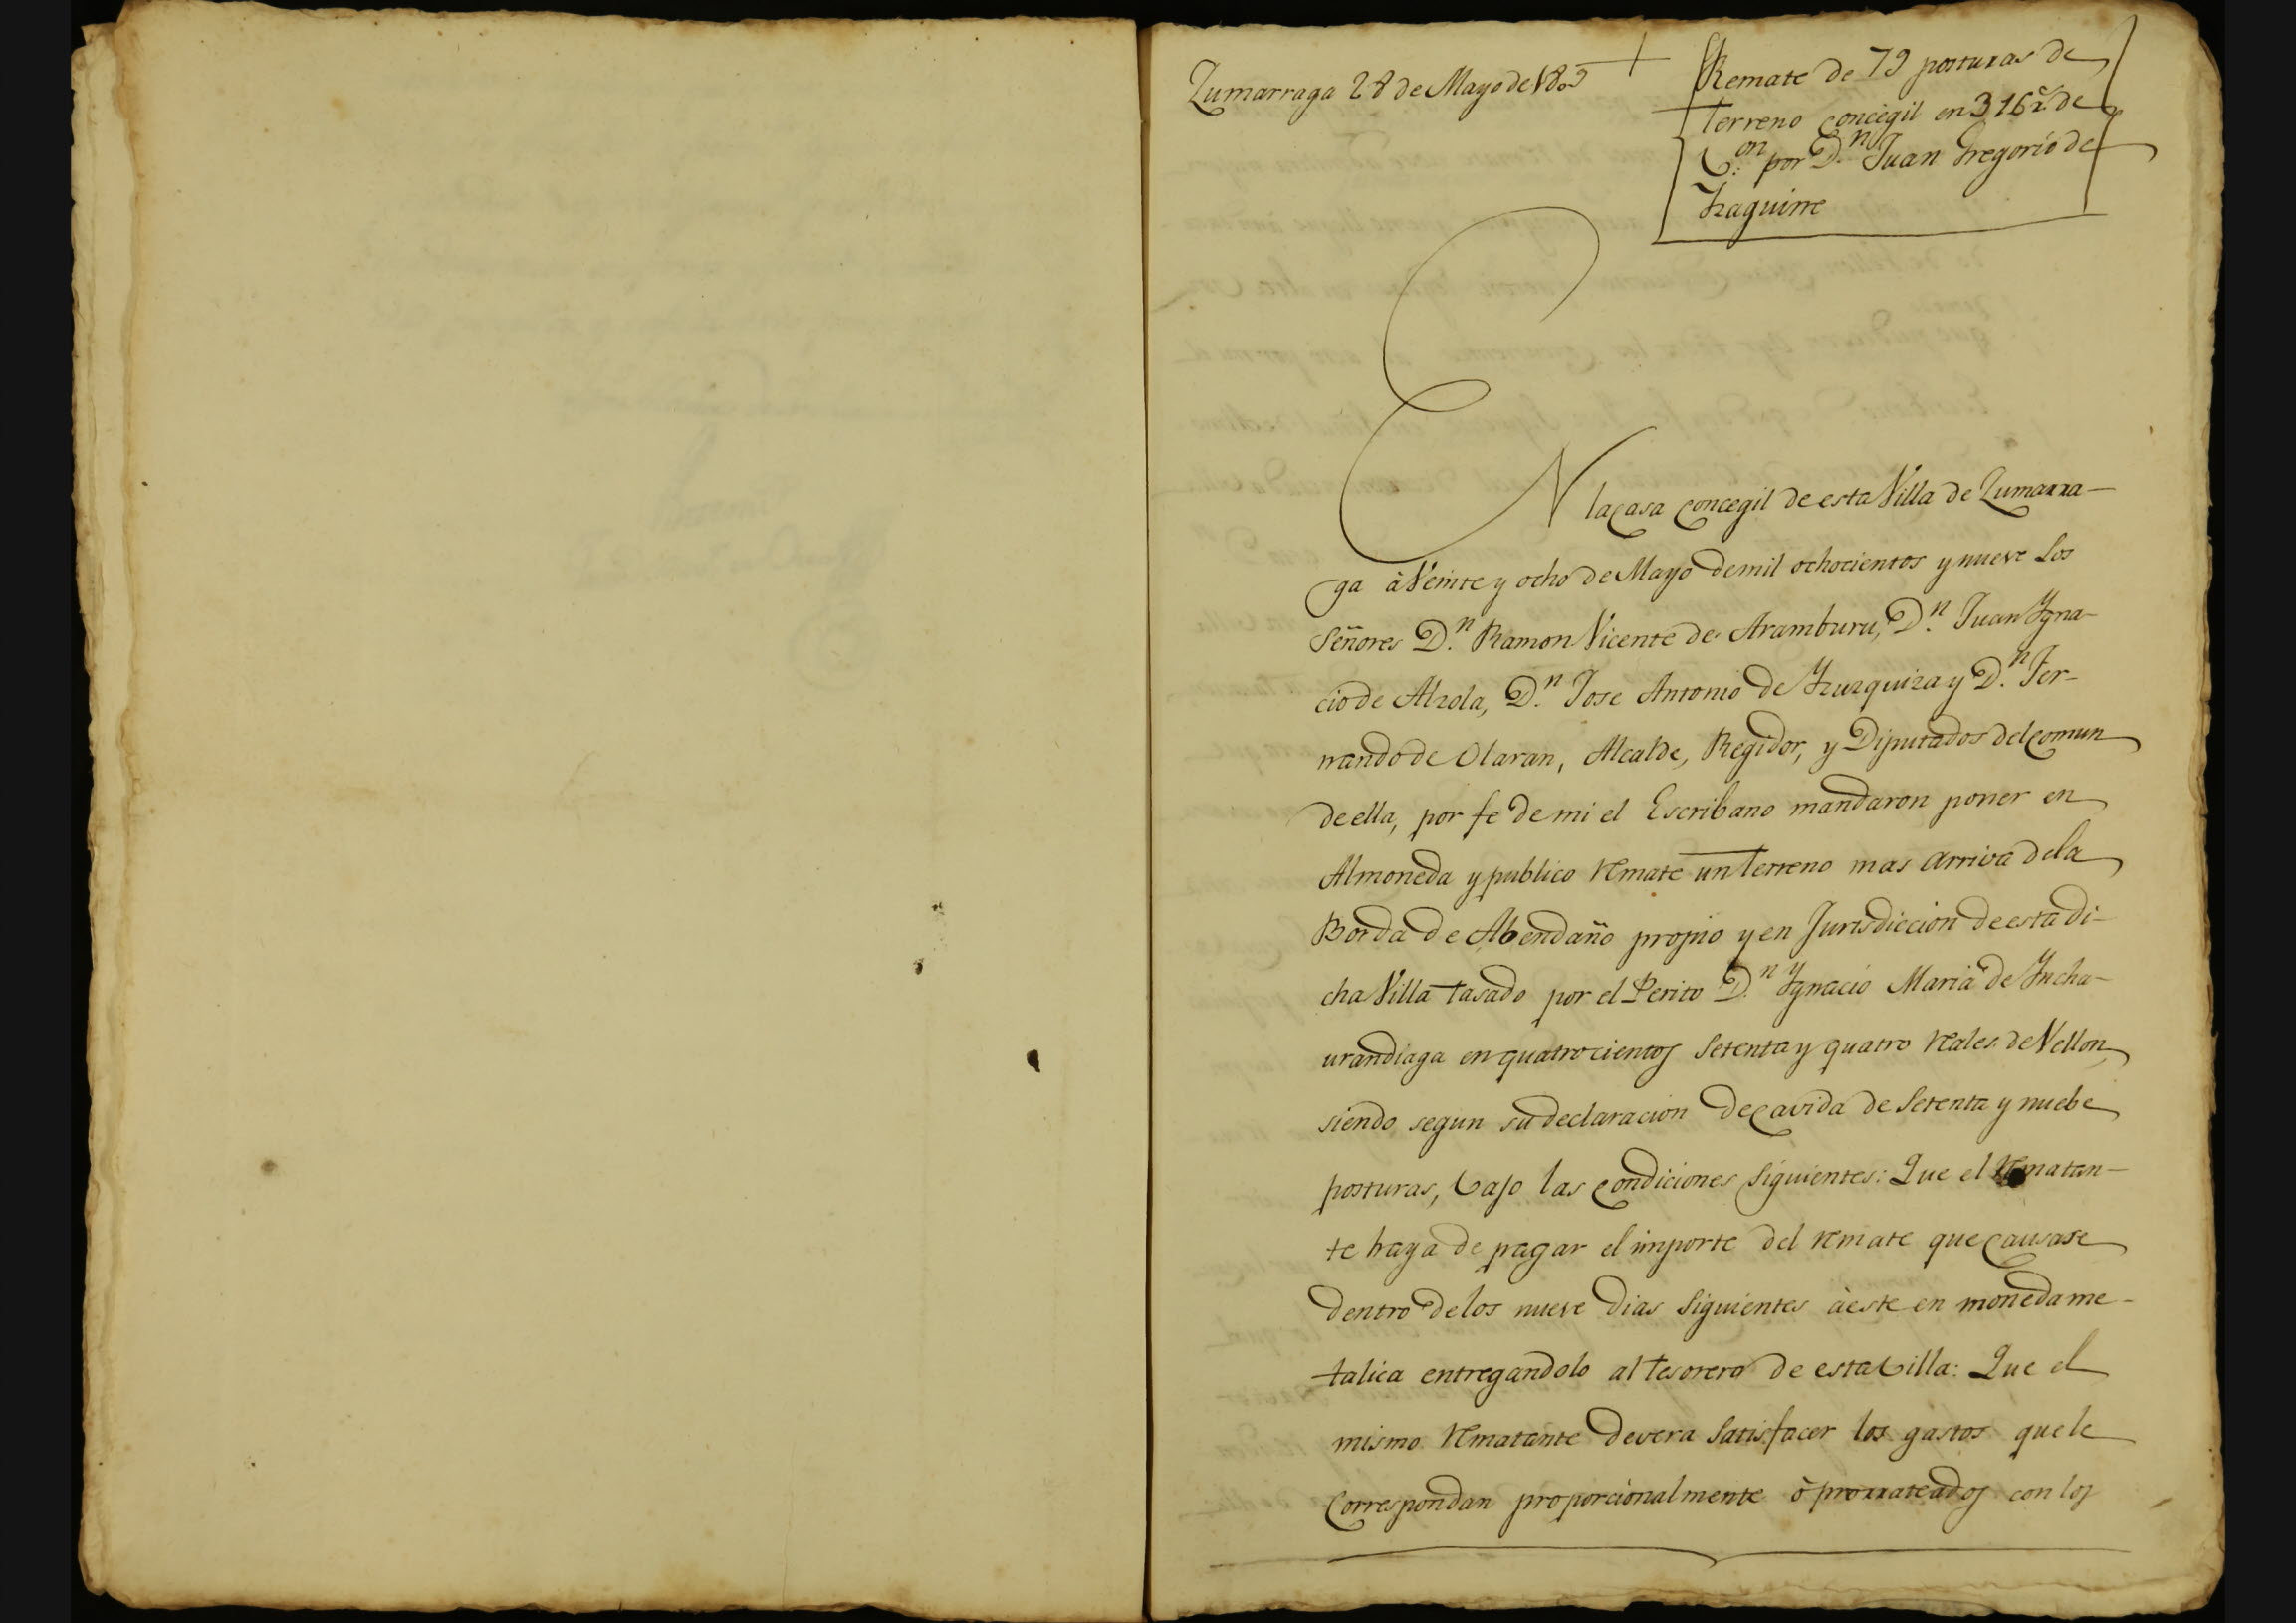 Zumarraga 28 de Mayo de 1809
Remate de 79 posturas de
terreno concegil en 316 r.s de
V.on por D.n Juan Gregorio de
Yzaguirre
EN la casa concegil de esta Villa de Zumarra-
ga à Veinte y ocho de Mayo de mil ochocientos y nueve los
Señores D.n Ramon Vicente de Aramburu, D.n Juan Ygna-
cio de Alzola, D.n Jose Antonio de Yzuzquiza y D.n Fer-
nando de Olaran, Alcalde, Regidor, y Diputados del comun
de ella, por fe de mi el Escribano mandaron poner en
Almoneda y publico remate un terreno mas arriva de la
Borda de Abendaño propio y en Jurisdiccion de esta di-
cha Villa tasado por el Perito D.n Ygnacio Maria de Yncha-
urandiaga en quatrocientos setenta y quatro reales de Vellon,
siendo segun su declaracion de cavida de setenta y nuebe
posturas, vajo las condiciones siguientes: Que el rematan-
te haya de pagar el importe del remate que causare
dentro de los nueve dias siguientes à este en moneda me-
talica entregandolo al tesorero de esta villa: Que el
mismo rematante devera satisfacer los gastos que le
correspondan proporcionalmente ò prorrateados con los